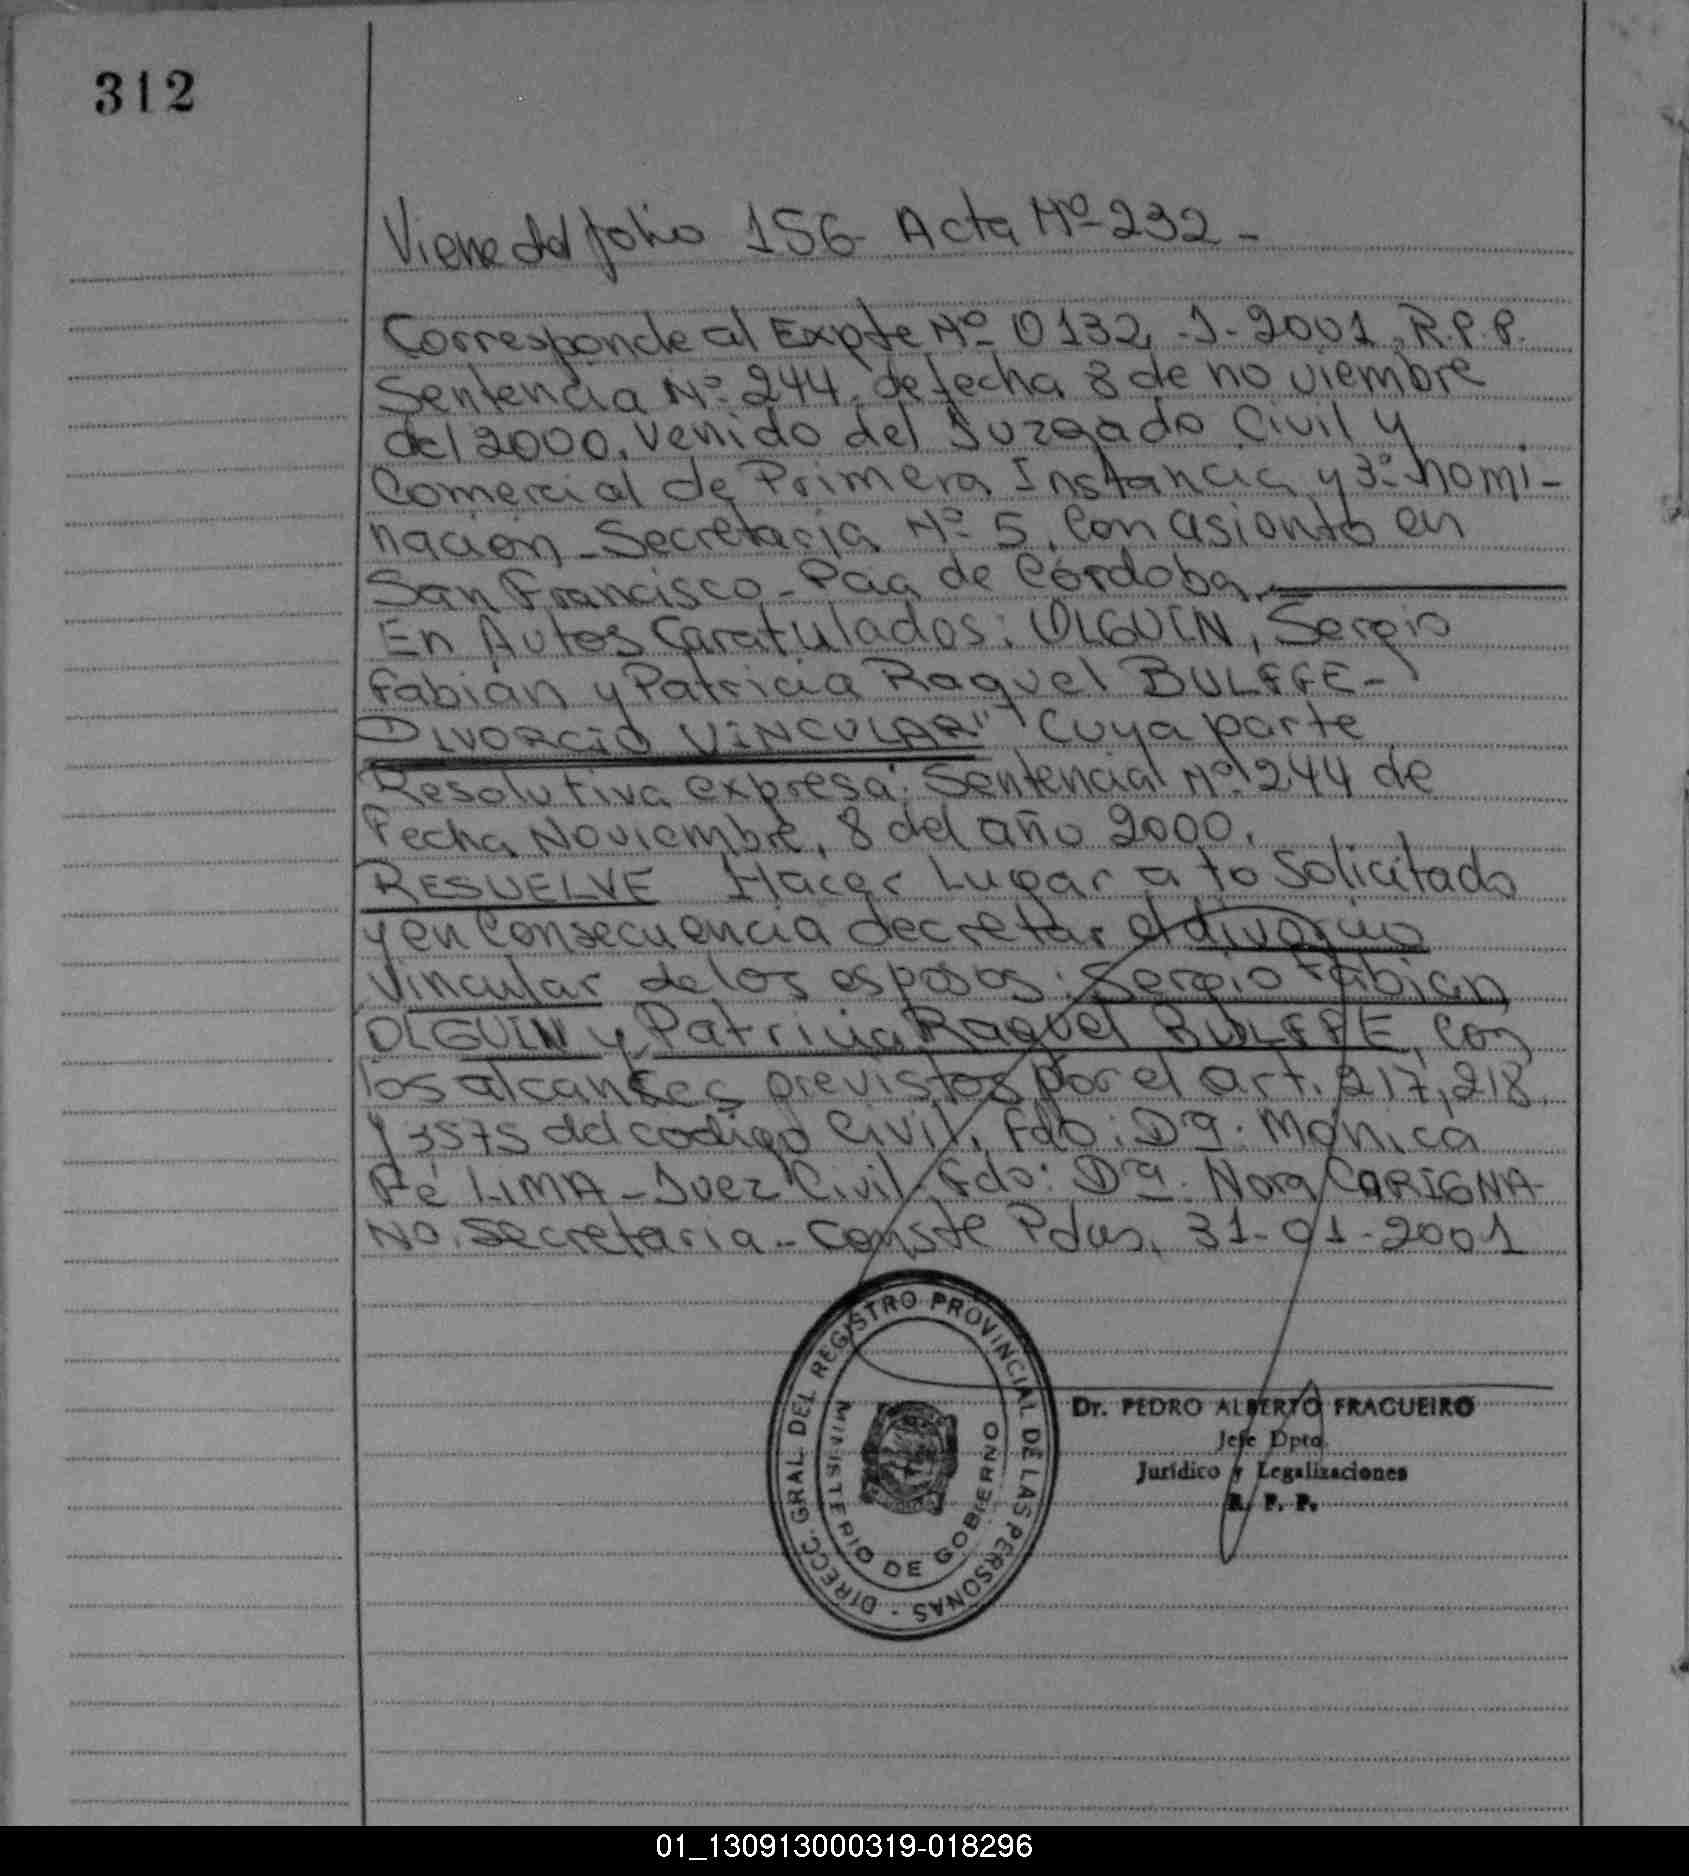 312
Viene del folio 156 Acta Nº 232 -
Corresponde al Expte Nº 0132, -J- 2001, R.P.P.
Sentencia Nº 244, de fecha 8 de noviembre
del 2000, venido del Juzgado Civil y
Comercial de Primera Instancia y 3º nomi-
nación - Secretaria Nº 5, con asiento en
San Francisco - Pcia de Córdoba,
En Autos Caratulados: OLGUIN, Sergio
Fabián y Patricia Raquel BULFFE -
DIVORCIO VINCULAR" Cuya parte
Resolutiva expresa: Sentencial Nº 244 de
Fecha Noviembre, 8 del año 2000,
RESUELVE Hacer Lugar a lo Solicitado
y en Consecuencia decretar el divorcio
Vincular de los esposos: Sergio Fabián
OLGUIN y Patricia Raquel BULFFE, con
los alcances previstos por el art. 217, 218,
y 3575 del codigo Civil, Fdo: Dra. Mónica
Fé LIMA - Juez Civil, Fdo: Dra. Nora CARIGNA-
NO, Secretaria - Conste Pdas, 31-01-2001
DIRECC. GRAL. DEL REGISTRO PROVINCIAL DE LAS PERSONAS -
MINISTERIO DE GOBIERNO
Dr. PEDRO ALBERTO FRAGUEIRO
Jefe Dpto.
Jurídico y Legalizaciones
R. P. P.
01_130913000319-018296